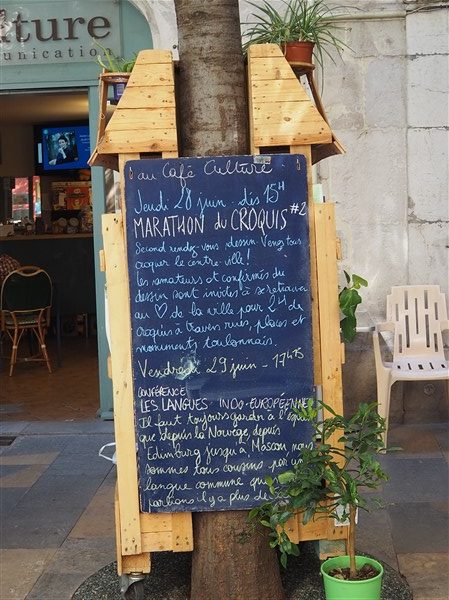 lture
unication
au Café Culture
Jeudi 28 juin - dès 15H
MARATHON du CROQUIS #2
Second rendez-vous dessin. Venez tous
croquer le centre-ville!
Les amateurs et confirmés du
dessin sont invités à se retrouver
au ♡ de la ville pour 2H de
croquis à travers rues, places et
monuments toulonnais.
Vendredi 29 juin - 17H15
CONFÉRENCE
LES LANGUES INDO-EUROPÉENNES
Il faut toujours garder à l'esprit
que depuis la Norvège, depuis
Edimburg jusqu'à Moscou, nous
sommes tous cousins par un
langue commune que
parlions il y a plus de